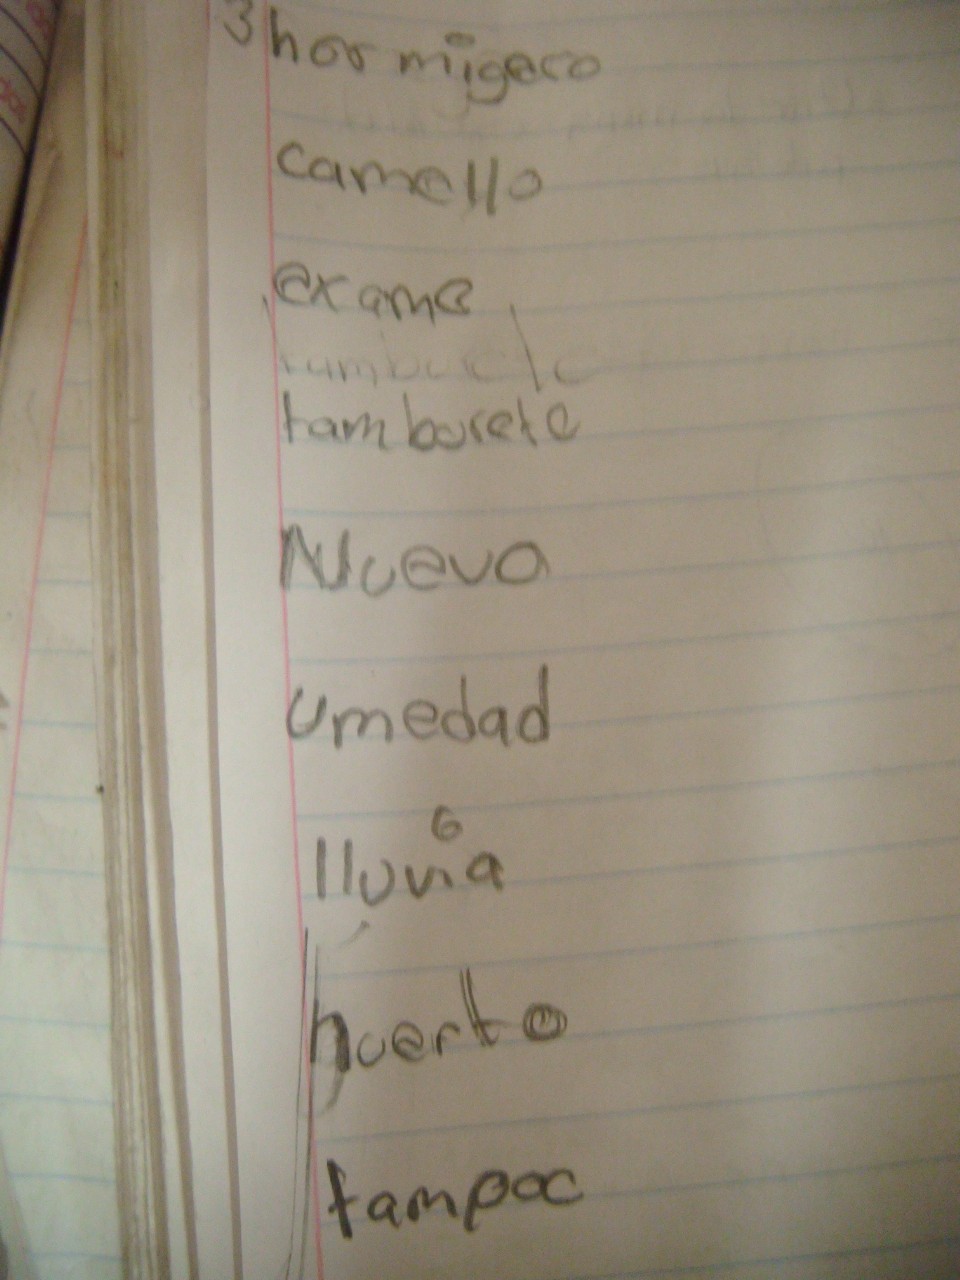 3 hormigero
camello
exame
tamburete
Nueva
umedad
6
lluvia
huerto
tampoc